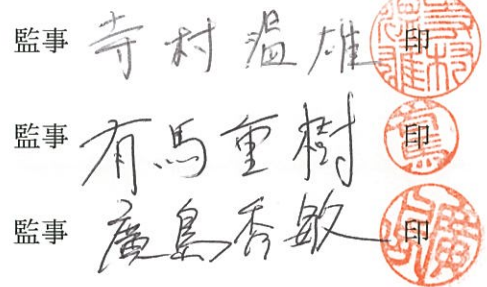 監事 寺村温雄 印
監事 有馬重樹 印
監事 廣島秀敏 印